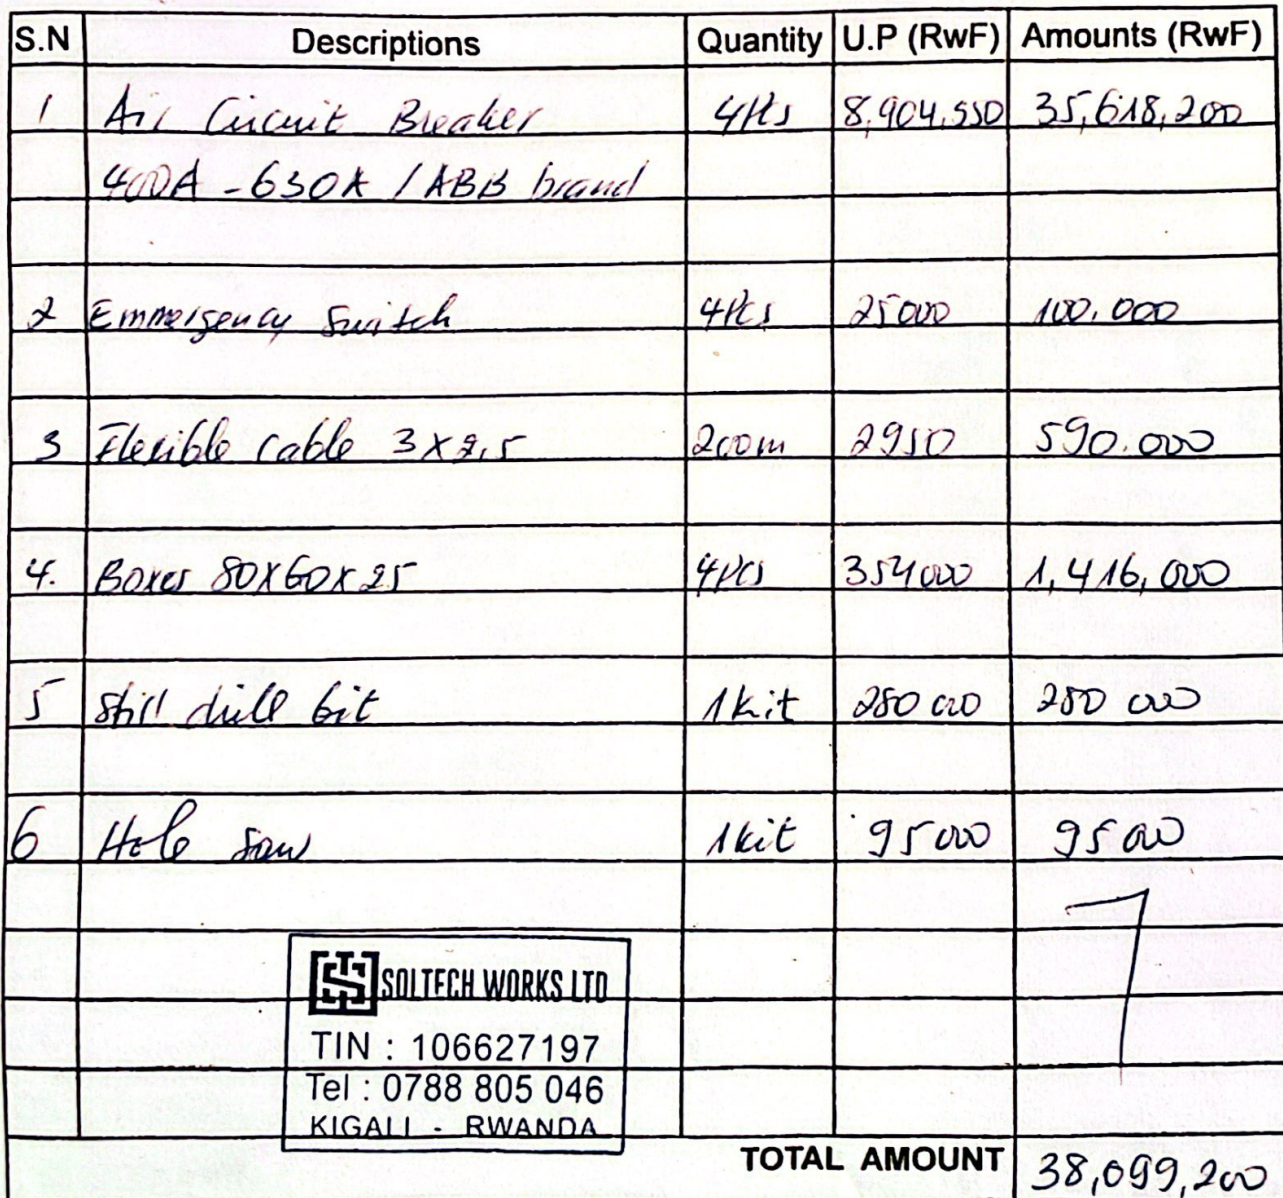 S.N Descriptions Quantity U.P (RwF) Amounts (RwF)
1 Air Circuit Breaker 4Pcs 8,904,550 35,618,200
400A - 630A / ABB brand
2 Emmergency Switch 4Pcs 25000 100.000
3 Flexible cable 3x2,5 200m 2950 590.000
4. Boxes 80x60x25 4Pcs 354000 1,416,000
5 Still drill bit 1kit 280 000 280 000
6 Hole saw 1kit 95000 95000
SOLTECH WORKS LTD
TIN : 106627197
Tel : 0788 805 046
KIGALI - RWANDA
TOTAL AMOUNT 38,099,200